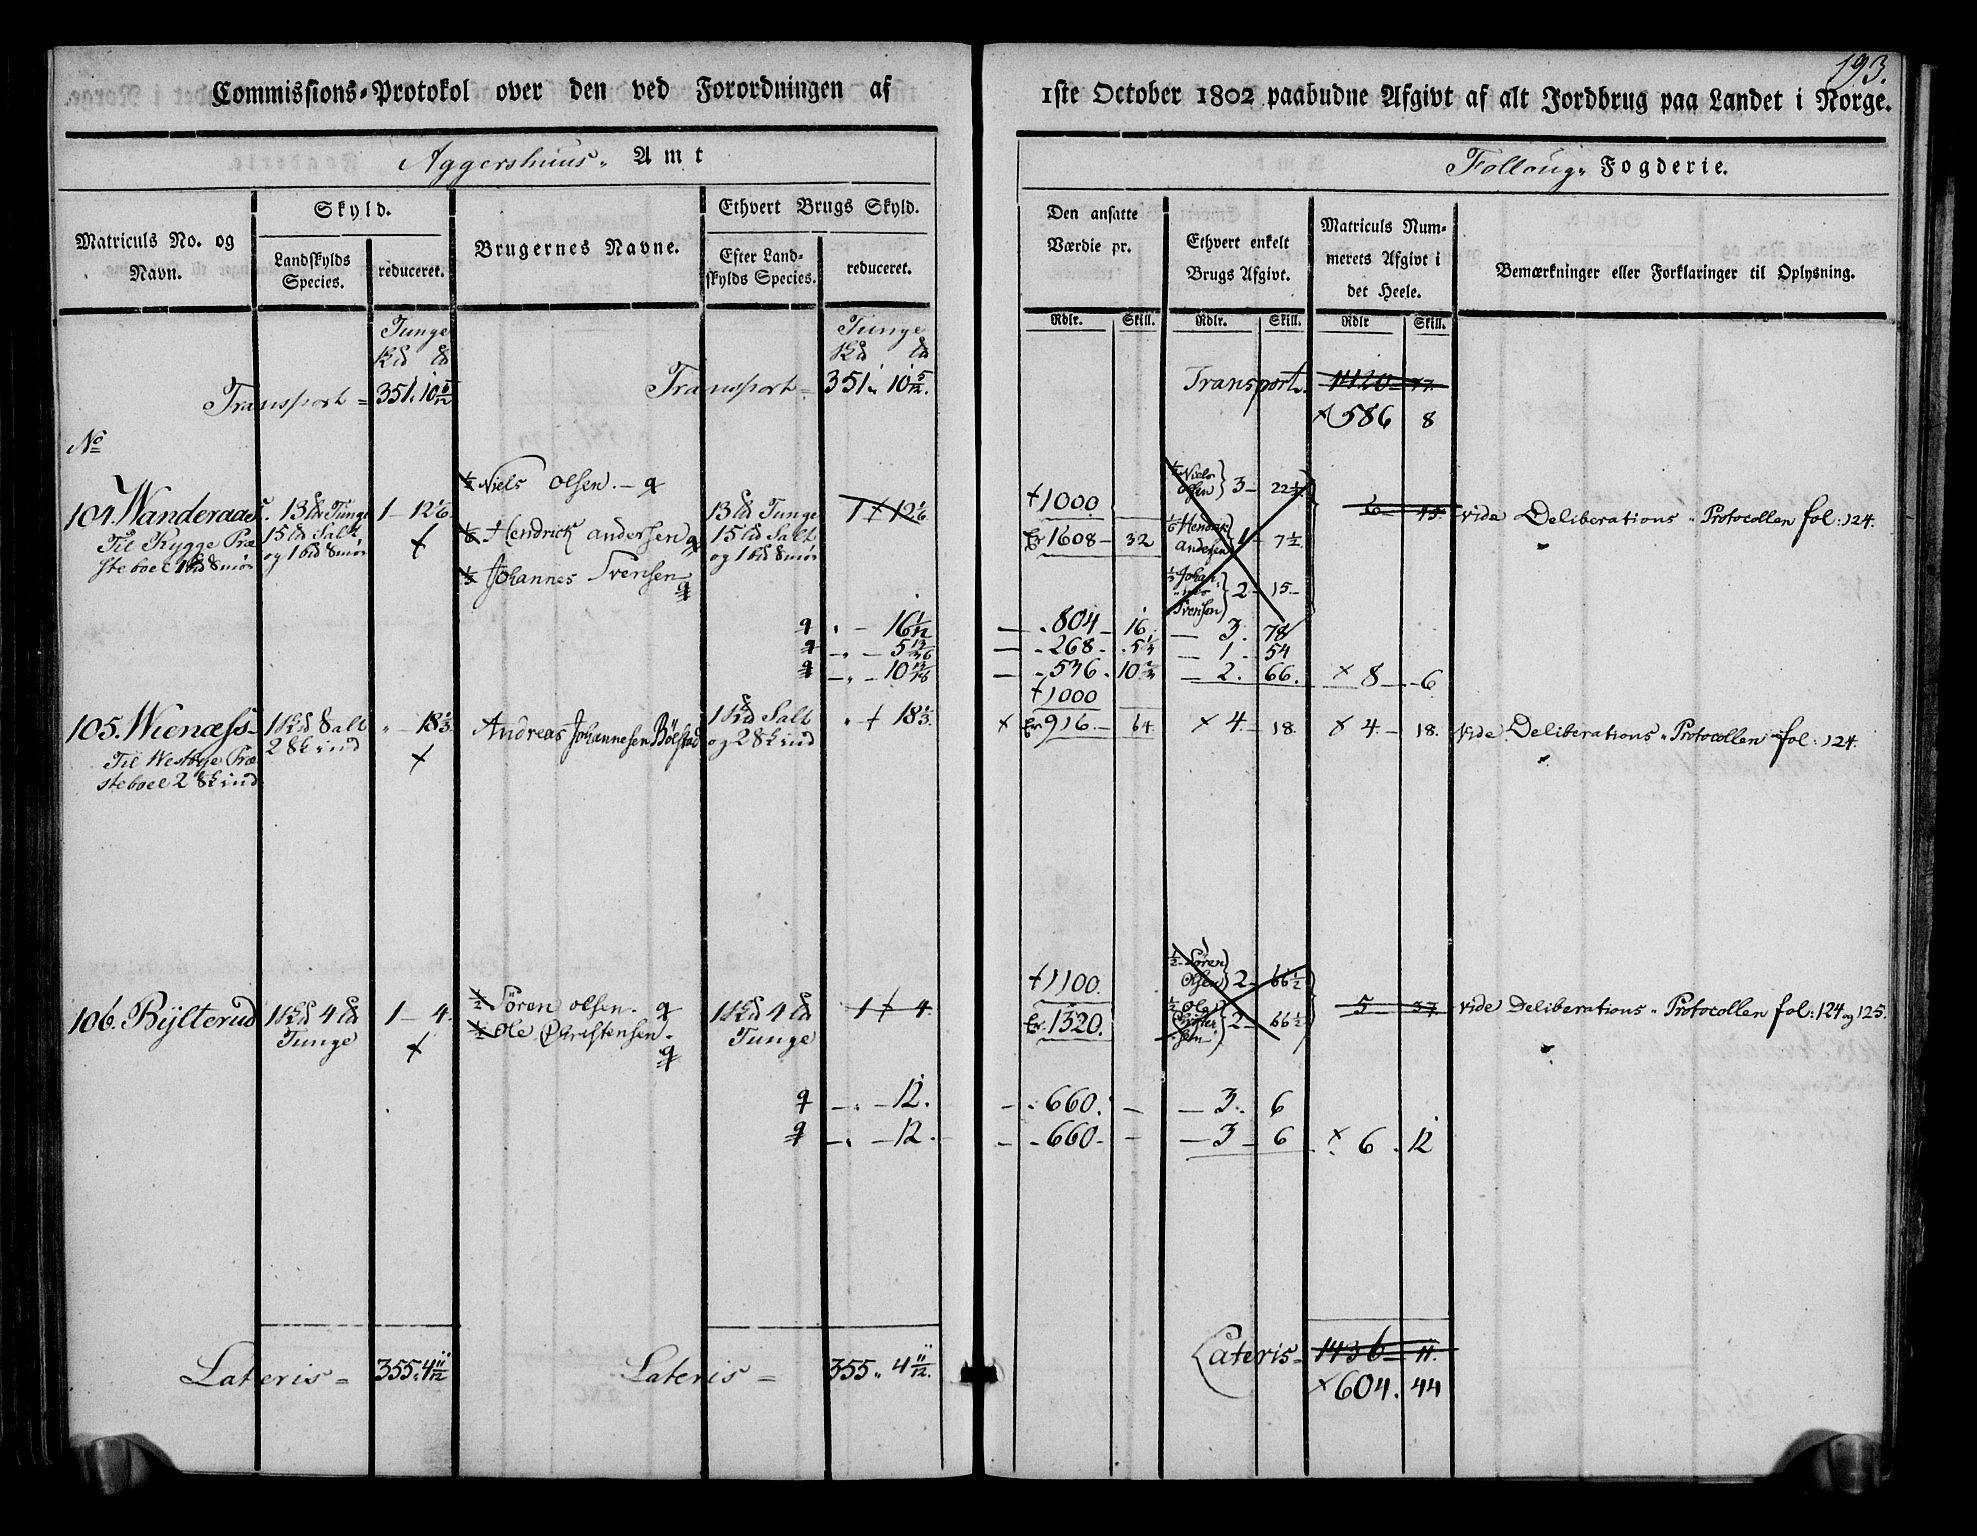 193.
Commissions-Protokol over den ved Forordningen af 1ste October 1802 paabudne Afgivt af alt Jordbrug paa Landet i Norge.
Aggershuus Amt
Folloug Fogderie.
Matriculs No. og Navn.
Skyld.
Landskylds Species.
reduceret.
Brugernes Navne.
Ethvert Brugs Skyld.
Efter Landskylds Species.
reduceret.
Den ansatte Værdie pr.
Rdlr. Skill.
Ethvert enkelt Brugs Afgivt.
Rdlr. Skill.
Matriculs Nummerets Afgivt i det Heele.
Rdlr Skill.
Bemærkninger eller Forklaringer til Oplysning.
Tunge
Tunge
Transport = 351. 10 5/12
Transport = 351. 10 5/12.
Transport. 1420 - 77.
× 586 8
No
104. Wanderaas. 13 lb Tunge 1 - 12 1/6. 1/2 Niels Olsen. - q 13 lb Tunge 1 + 12 1/6.
Til Rygge Præ 15 lb Salt 1/6 Hendrick andersen q 15 lb Salt
steboel og 1/3 Johannes Svensen q og
+ 1000
Er 1608 - 32
1/2 Niels Olsen 3 - 22 1/2
1/6 Hendrik Andersen 1 - 7 1/2
1/3 Johannes Svensen 2 - 15 -
6 - 45.
vide Deliberations-Protocollen fol: 124.
q - 16 1/12 - 804 - 16 - 3. 78
q - 5 13/36 - 268 - 5 1/3 - 1 - 54
q - 10 13/18 - 536. 10 2/3 - 2. 66. × 8 - 6
105. Wienæss - Salt - 18 1/3. Andreas Johannesen Bölstad Salt + 18 1/3.
Til Westbye Præ
steboel
+ 1000
× Er 916 - 64 × 4 - 18. × 4 - 18. vide Deliberations-Protocollen fol: 124.
106. Bÿlterud 4 lb 1 - 4. 1/2 Sören olsen. q 4 lb 1 + 4.
Tunge 1/2 Ole Christensen. q Tunge
+ 1100.
Er 1320.
1/2 Sören Olsen 2 - 66 1/2
1/2 Ole Christensen 2 - 66 1/2
5 - 37.
vide Deliberations-Protocollen fol: 124 og 125.
q - 12. - 660. - 3. 6
q - 12. - 660 - 3 - 6 × 6 . 12
Lateris = 355. 4 11/12
Lateris = 355. 4 11/12.
Lateris - 1436 - 11.
× 604. 44